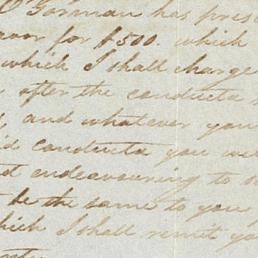 O'Gorman has prese
avor for $500. which
which I shall charge
after the conducta
and whatever you
id conducta you wi
d endeavouring to
t be the same to you
hich I shall remit yo